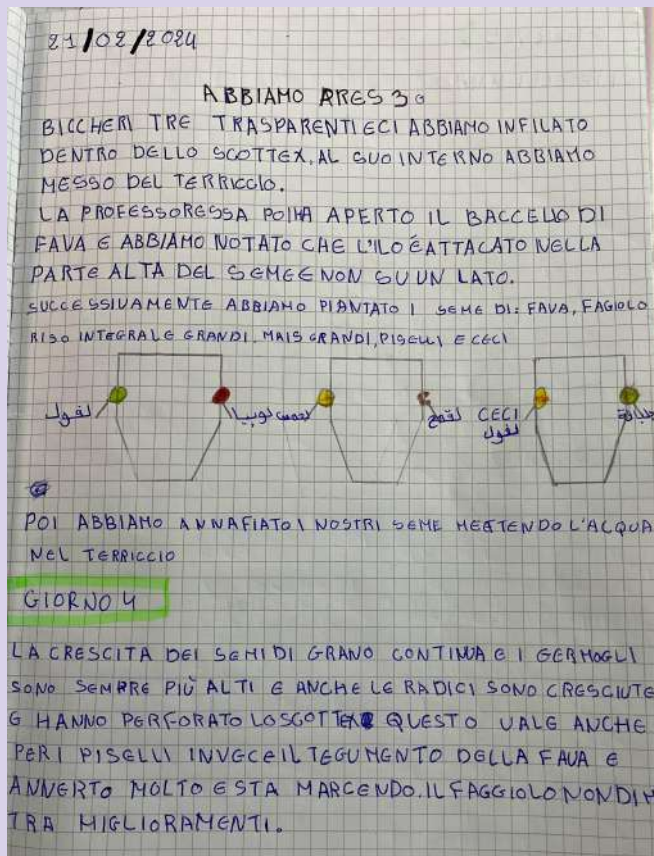 21/02/2024
ABBIAMO PRES 3
BICCHERI TRE TRASPARENTI E CI ABBIAMO INFILATO
DENTRO DELLO SCOTTEX. AL SUO INTERNO ABBIAMO
MESSO DEL TERRICCIO.
LA PROFESSORESSA POI HA APERTO IL BACCELLO DI
FAVA E ABBIAMO NOTATO CHE L'ILO É ATTACATO NELLA
PARTE ALTA DEL SEME E NON SU UN LATO.
SUCCESSIVAMENTE ABBIAMO PIANTATO I SEME DI: FAVA, FAGIOLO
RISO INTEGRALE GRANDI, MAIS GRANDI, PISELLI E CECI
لفول لوبيا لحمص لقمح CECI
لفول
POI ABBIAMO ANNAFIATO I NOSTRI SEME METTENDO L'ACQUA
NEL TERRICCIO
GIORNO 4
LA CRESCITA DEI SEMI DI GRANO CONTINUA E I GERMOGLI
SONO SEMPRE PIÙ ALTI E ANCHE LE RADICI SONO CRESCIUTE
E HANNO PERFORATO LO SCOTTEX QUESTO VALE ANCHE
PER I PISELLI INVECE IL TEGUMENTO DELLA FAVA E
ANNERTO MOLTO E STA MARCENDO. IL FAGGIOLO NON DIM
TRA MIGLIORAMENTI.